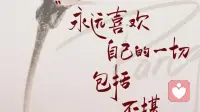 "永远喜欢
自己的一切
包括
不堪